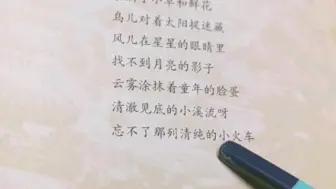 小草和鲜花
鸟儿对着太阳捉迷藏
风儿在星星的眼睛里
找不到月亮的影子
云雾涂抹着童年的脸蛋
清澈见底的小溪流呀
忘不了那列清纯的小火车